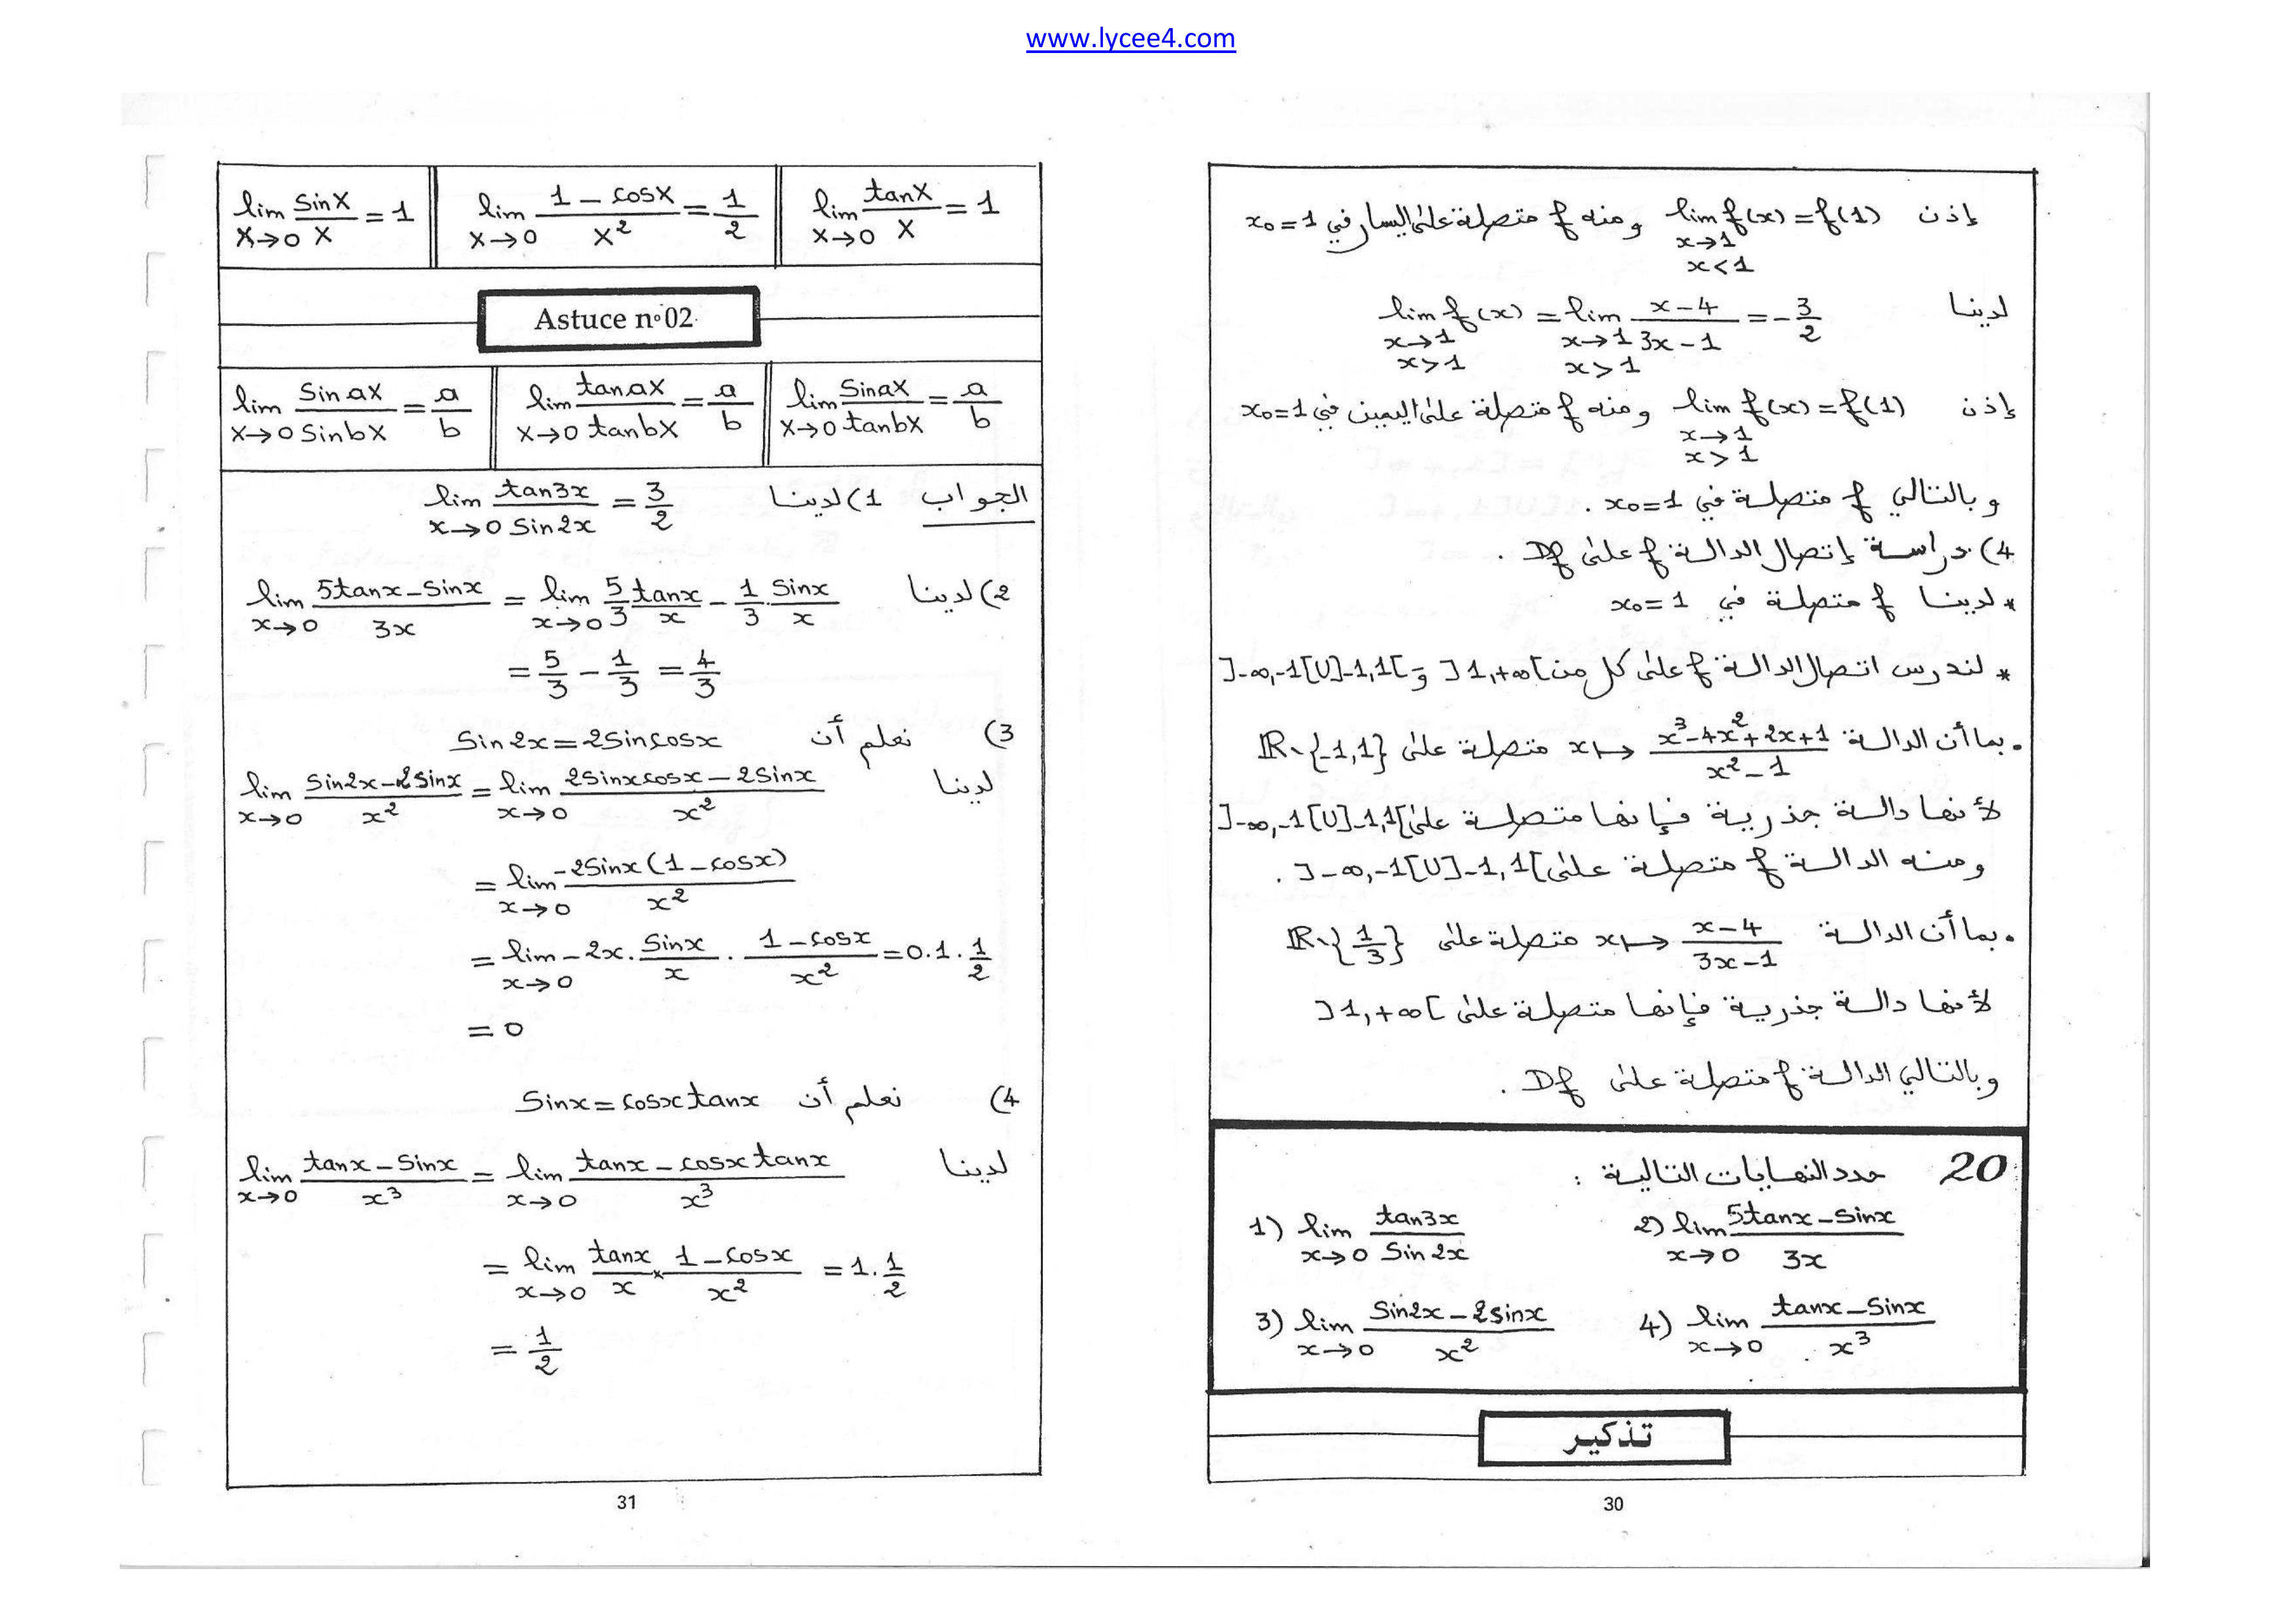 www.lycee4.com
إذن lim f(x) = f(1) ومنه f متصلة على اليسار في x₀=1
x→1
x<1
لدينا lim f(x) = lim (x-4)/(3x-1) = -3/2
x→1 x→1
x>1 x>1
إذن lim f(x) = f(1) ومنه f متصلة على اليمين في x₀=1
x→1
x>1
وبالتالي f متصلة في x₀=1 .
4) دراسة إتصال الدالة f على Df .
* لدينا f متصلة في x₀=1
* لندرس اتصال الدالة f على كل من ]1,+∞[ و ]-∞,-1[U]-1,1[
. بما أن الدالة x ↦ (x³-4x²+2x+1)/(x²-1) متصلة على ℝ\{-1,1}
لأنها دالة جذرية فإنها متصلة على ]-∞,-1[U]-1,1[
ومنه الدالة f متصلة على ]-∞,-1[U]-1,1[ .
. بما أن الدالة x ↦ (x-4)/(3x-1) متصلة على ℝ\{1/3}
لأنها دالة جذرية فإنها متصلة على ]1,+∞[
وبالتالي الدالة f متصلة على Df .
20 حدد النهايات التالية :
1) lim x→0 tan3x/sin2x 2) lim x→0 (5tanx-sinx)/3x
3) lim x→0 (sin2x-2sinx)/x² 4) lim x→0 (tanx-sinx)/x³
تذكير
30
lim x→0 sinx/x = 1 lim x→0 (1-cosx)/x² = 1/2 lim x→0 tanx/x = 1
Astuce n°02
lim x→0 sinax/sinbx = a/b lim x→0 tanax/tanbx = a/b lim x→0 sinax/tanbx = a/b
الجواب 1) لدينا lim x→0 tan3x/sin2x = 3/2
2) لدينا lim x→0 (5tanx-sinx)/3x = lim x→0 5/3 tanx/x - 1/3 . sinx/x
= 5/3 - 1/3 = 4/3
3) نعلم أن sin2x=2sincosx
لدينا lim x→0 (sin2x-2sinx)/x² = lim x→0 (2sinxcosx-2sinx)/x²
= lim x→0 -2sinx(1-cosx)/x²
= lim x→0 -2x . sinx/x . (1-cosx)/x² = 0.1.1/2
= 0
4) نعلم أن sinx=cosxtanx
لدينا lim x→0 (tanx-sinx)/x³ = lim x→0 (tanx-cosxtanx)/x³
= lim x→0 tanx/x × (1-cosx)/x² = 1.1/2
= 1/2
31